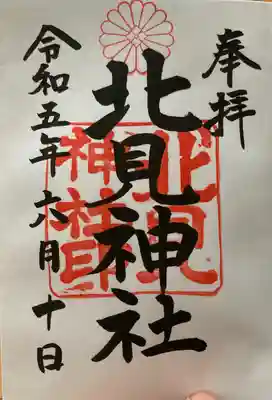 奉拝
北見神社
北見
神社印
令和五年六月十日